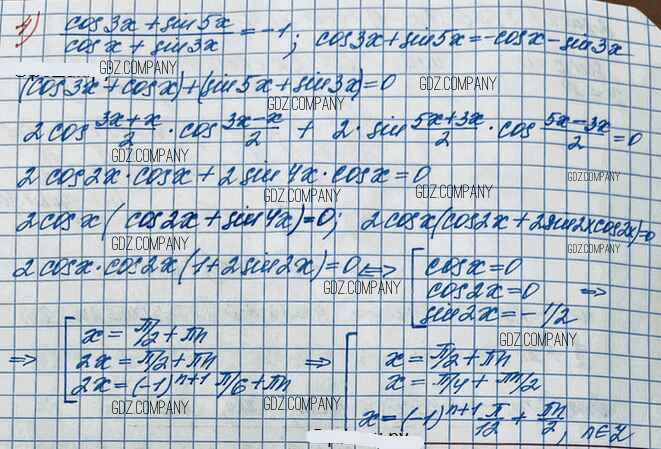 4) (cos3x + sin5x)/(cosx + sin3x) = -1; cos3x + sin5x = -cosx - sin3x
GDZ.COMPANY GDZ.COMPANY
(cos3x + cosx) + (sin5x + sin3x) = 0
GDZ.COMPANY GDZ.COMPANY
2cos (3x+x)/2 · cos (3x-x)/2 + 2 · sin (5x+3x)/2 · cos (5x-3x)/2 = 0
GDZ.COMPANY
2cos2x·cosx + 2sin4x·cosx = 0
GDZ.COMPANY GDZ.COMPANY GDZ.COMPANY
2cosx(cos2x + sin4x) = 0; 2cosx(cos2x + 2sin2xcos2x) = 0
GDZ.COMPANY GDZ.COMPANY GDZ.COMPANY
2cosx·cos2x(1 + 2sin2x) = 0 <=> [ cosx = 0
GDZ.COMPANY
cos2x = 0 =>
GDZ.COMPANY
sin2x = -1/2
GDZ.COMPANY
=> [ x = π/2 + πn
2x = π/2 + πn
2x = (-1)^(n+1) π/6 + πn
=> [ x = π/2 + πn
x = π/4 + πn/2
x = (-1)^(n+1) π/12 + πn/2, n∈Z
GDZ.COMPANY GDZ.COMPANY